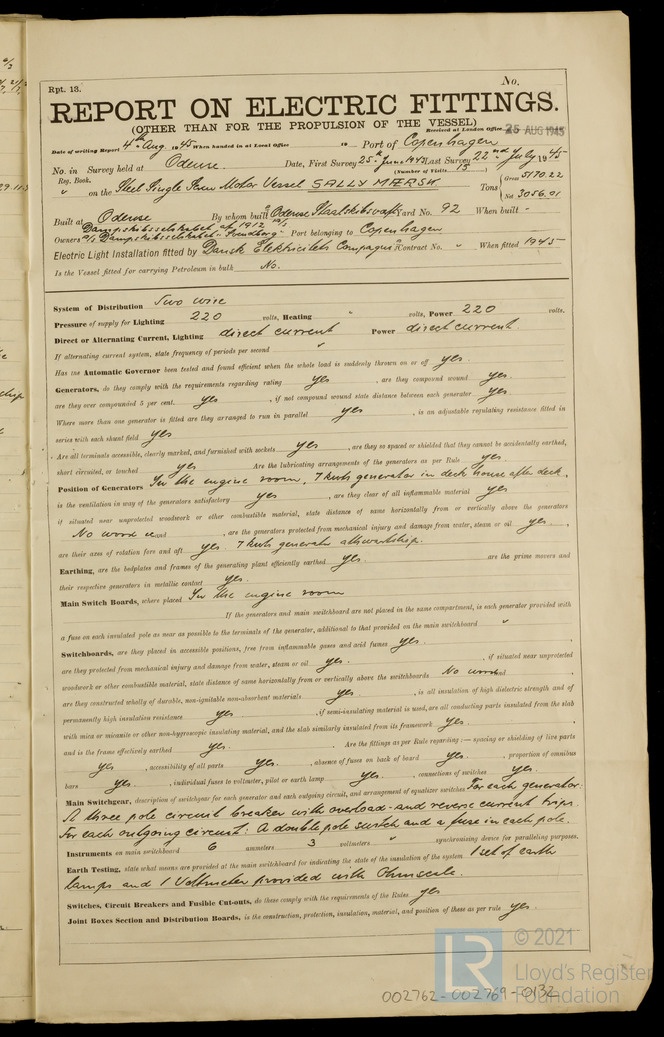 Rpt. 13.
No.
REPORT ON ELECTRIC FITTINGS.
(OTHER THAN FOR THE PROPULSION OF THE VESSEL)
Received at London Office 25 AUG 1945
Date of writing Report 4th Aug. 1945 When handed in at Local Office 19 Port of Copenhagen
No. in Survey held at Odense Date, First Survey 25th June 1943 Last Survey 22nd July 1945
Reg. Book. (Number of Visits 15)
" on the Steel Single Screw Motor Vessel SALLY MÆRSK Tons { Gross 5170.22
Net 3056.01
Built at Odense By whom built Odense Staalskibsværft Yard No. 92 When built -
Owners Dampskibsselskabet af 1912 A/S
A/S Dampskibsselskabet Svendborg Port belonging to Copenhagen
Electric Light Installation fitted by Dansk Elektricitets Compagni Contract No. " When fitted 1945
Is the Vessel fitted for carrying Petroleum in bulk No.
System of Distribution Two wire
Pressure of supply for Lighting 220 volts, Heating " volts, Power 220 volts.
Direct or Alternating Current, Lighting direct current Power direct current.
If alternating current system, state frequency of periods per second "
Has the Automatic Governor been tested and found efficient when the whole load is suddenly thrown on or off yes.
Generators, do they comply with the requirements regarding rating yes , are they compound wound yes.
are they over compounded 5 per cent. yes , if not compound wound state distance between each generator yes.
Where more than one generator is fitted are they arranged to run in parallel yes , is an adjustable regulating resistance fitted in
series with each shunt field yes
Are all terminals accessible, clearly marked, and furnished with sockets yes , are they so spaced or shielded that they cannot be accidentally earthed,
short circuited, or touched yes Are the lubricating arrangements of the generators as per Rule yes.
Position of Generators In the engine room, 7 kwts generator in deck house after deck,
is the ventilation in way of the generators satisfactory yes , are they clear of all inflammable material yes
if situated near unprotected woodwork or other combustible material, state distance of same horizontally from or vertically above the generators
No wood used , are the generators protected from mechanical injury and damage from water, steam or oil yes.
are their axes of rotation fore and aft yes. 7 kwts generator athwartship.
Earthing, are the bedplates and frames of the generating plant efficiently earthed yes. are the prime movers and
their respective generators in metallic contact yes.
Main Switch Boards, where placed In the engine room
If the generators and main switchboard are not placed in the same compartment, is each generator provided with
a fuse on each insulated pole as near as possible to the terminals of the generator, additional to that provided on the main switchboard "
Switchboards, are they placed in accessible positions, free from inflammable gases and acid fumes yes.
are they protected from mechanical injury and damage from water, steam or oil yes. , if situated near unprotected
woodwork or other combustible material, state distance of same horizontally from or vertically above the switchboards No wood
are they constructed wholly of durable, non-ignitable non-absorbent materials yes. , is all insulation of high dielectric strength and of
permanently high insulation resistance yes , if semi-insulating material is used, are all conducting parts insulated from the slab
with mica or micanite or other non-hygroscopic insulating material, and the slab similarly insulated from its framework yes
and is the frame effectively earthed yes. Are the fittings as per Rule regarding :— spacing or shielding of live parts
yes , accessibility of all parts yes. , absence of fuses on back of board yes. , proportion of omnibus
bars yes. , individual fuses to voltmeter, pilot or earth lamp yes. , connections of switches yes.
Main Switchgear, description of switchgear for each generator and each outgoing circuit, and arrangement of equalizer switches For each generator:
A three pole circuit breaker with overload- and reverse current trips.
For each outgoing circuit: A double pole switch and a fuse in each pole.
Instruments on main switchboard 6 ammeters 3 voltmeters " synchronising device for paralleling purposes.
Earth Testing, state what means are provided at the main switchboard for indicating the state of the insulation of the system 1 set of earth
lamps and 1 Voltmeter provided with Ohmscale.
Switches, Circuit Breakers and Fusible Cut-outs, do these comply with the requirements of the Rules yes
Joint Boxes Section and Distribution Boards, is the construction, protection, insulation, material, and position of these as per rule yes.
© 2021
LR
Lloyd's Register
Foundation
002762-002769-0132